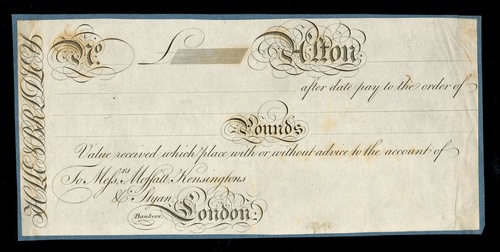 No. £ Alton
after date pay to the order of
Pounds
Value received which place with or without advice to the account of
To Messrs. Moffatt, Kensingtons
& Styan,
Bankers, London: